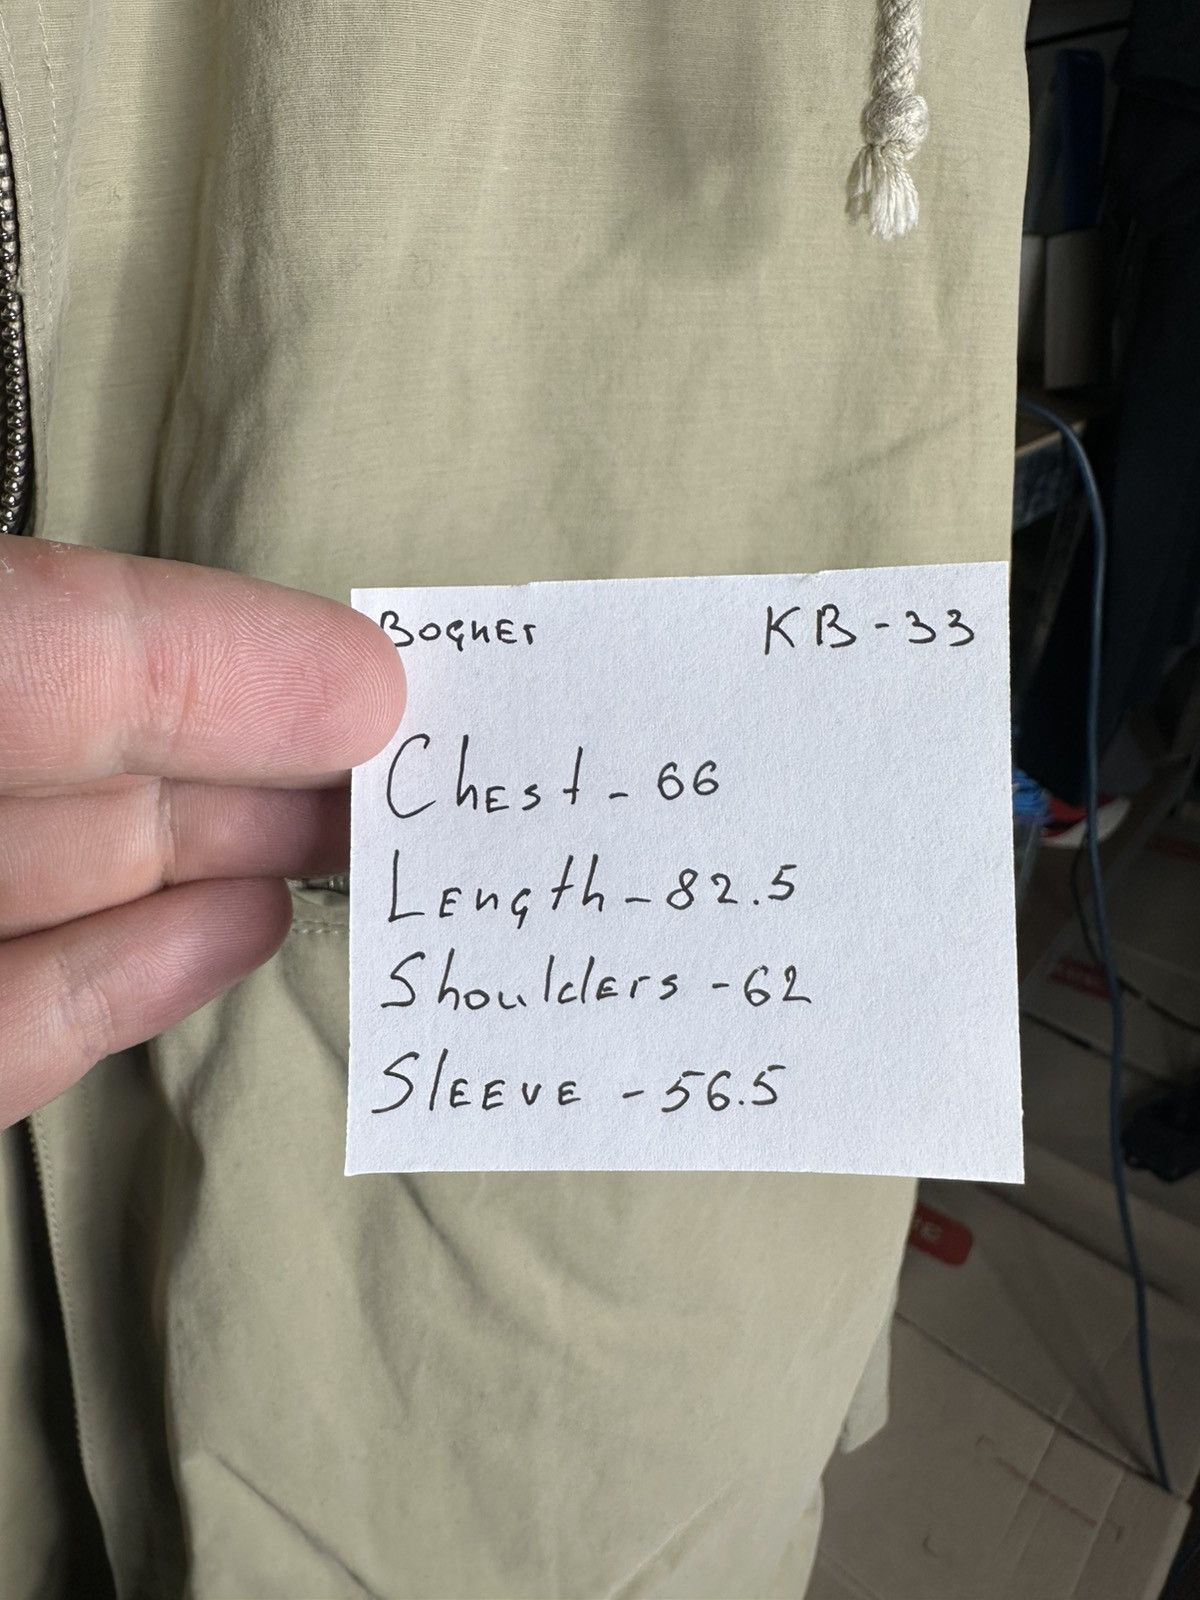 Bogner KB-33
Chest - 66
Length - 82.5
Shoulders - 62
Sleeve - 56.5